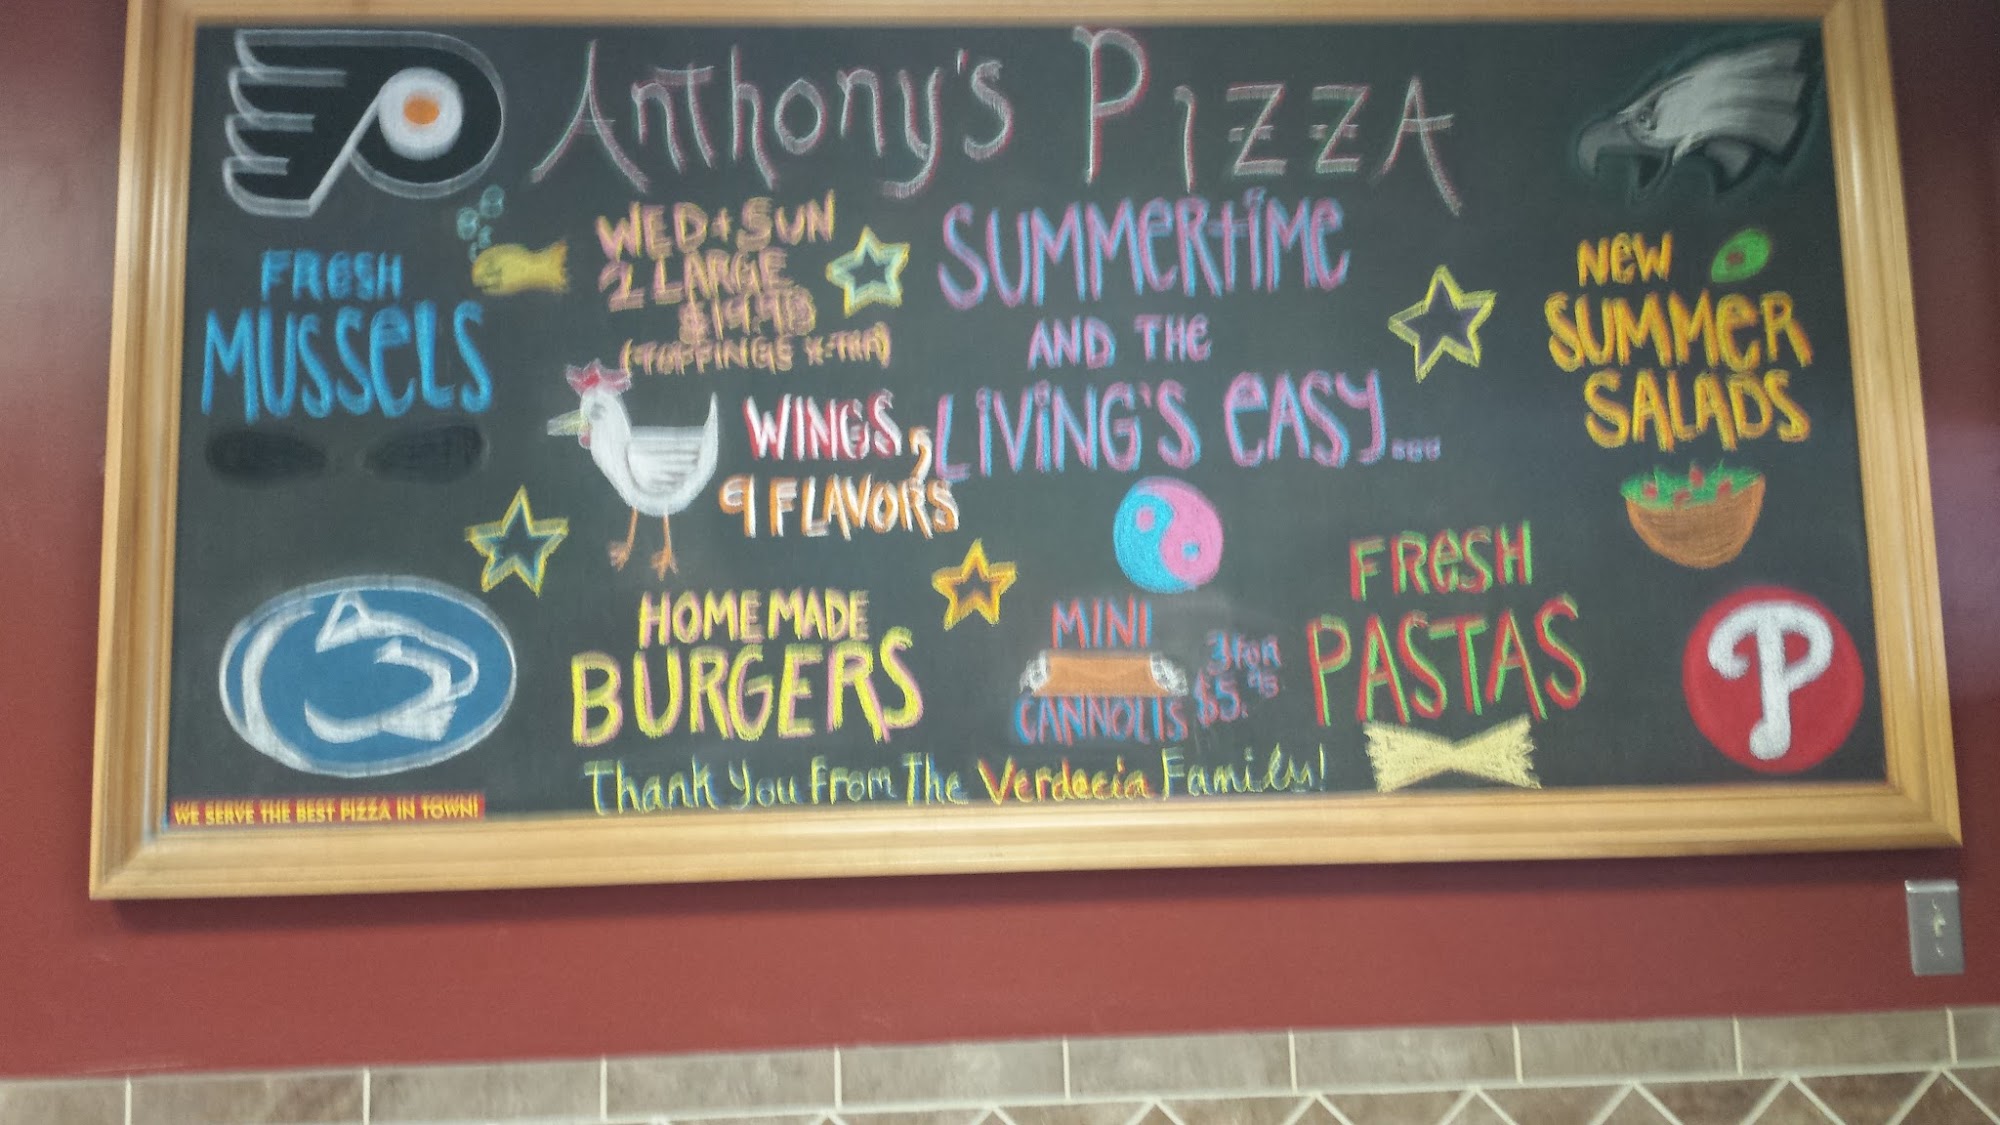 Anthony's Pizza
WED + SUN
2 LARGE
(TOPPINGS X-TRA)
SUMMERTIME
AND THE
LIVING'S EASY...
NEW
SUMMER
SALADS
FRESH
MUSSELS
WINGS,
9 FLAVORS
HOMEMADE
BURGERS
MINI
CANNOLIS
3 FOR
$5.
FRESH
PASTAS
P
Thank You From The Verdecia Family!
WE SERVE THE BEST PIZZA IN TOWN!